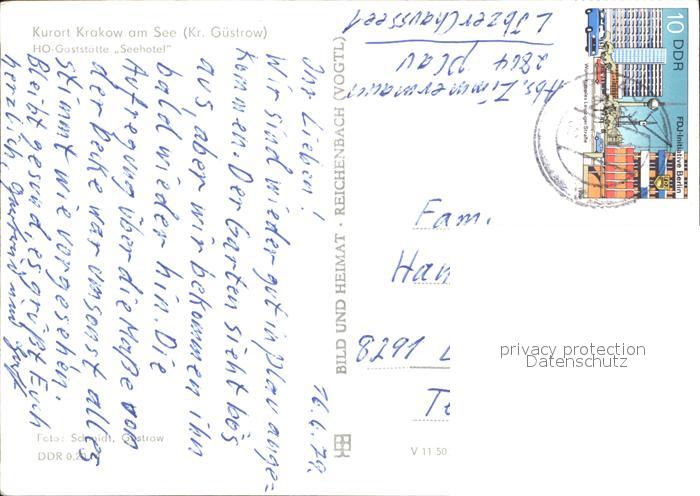 Kurort Krakow am See (Kr. Güstrow)
HO-Gaststätte „Seehotel"
16.6.79
Ihr Lieben!
Wir sind wieder gut in Plau ange=
kommen. Der Garten sieht bös
aus, aber wir bekommen ihn
bald wieder hin. Die
Aufregung über die Maße von
der Decke war umsonst alles
stimmt wie vorgesehen.
Bleibt gesund es grüßt Euch
herzlich
Foto: Schmidt, Güstrow
DDR 0,20
BILD UND HEIMAT · REICHENBACH (VOGTL)
V 11 50
Abs. Zimmermann
2864 Plau
Lübzer Chaussee 1
10 DDR
FDJ-Initiative Berlin
Wohnkomplex Leipziger Straße
Fam.
Han
8291
privacy protection
Datenschutz